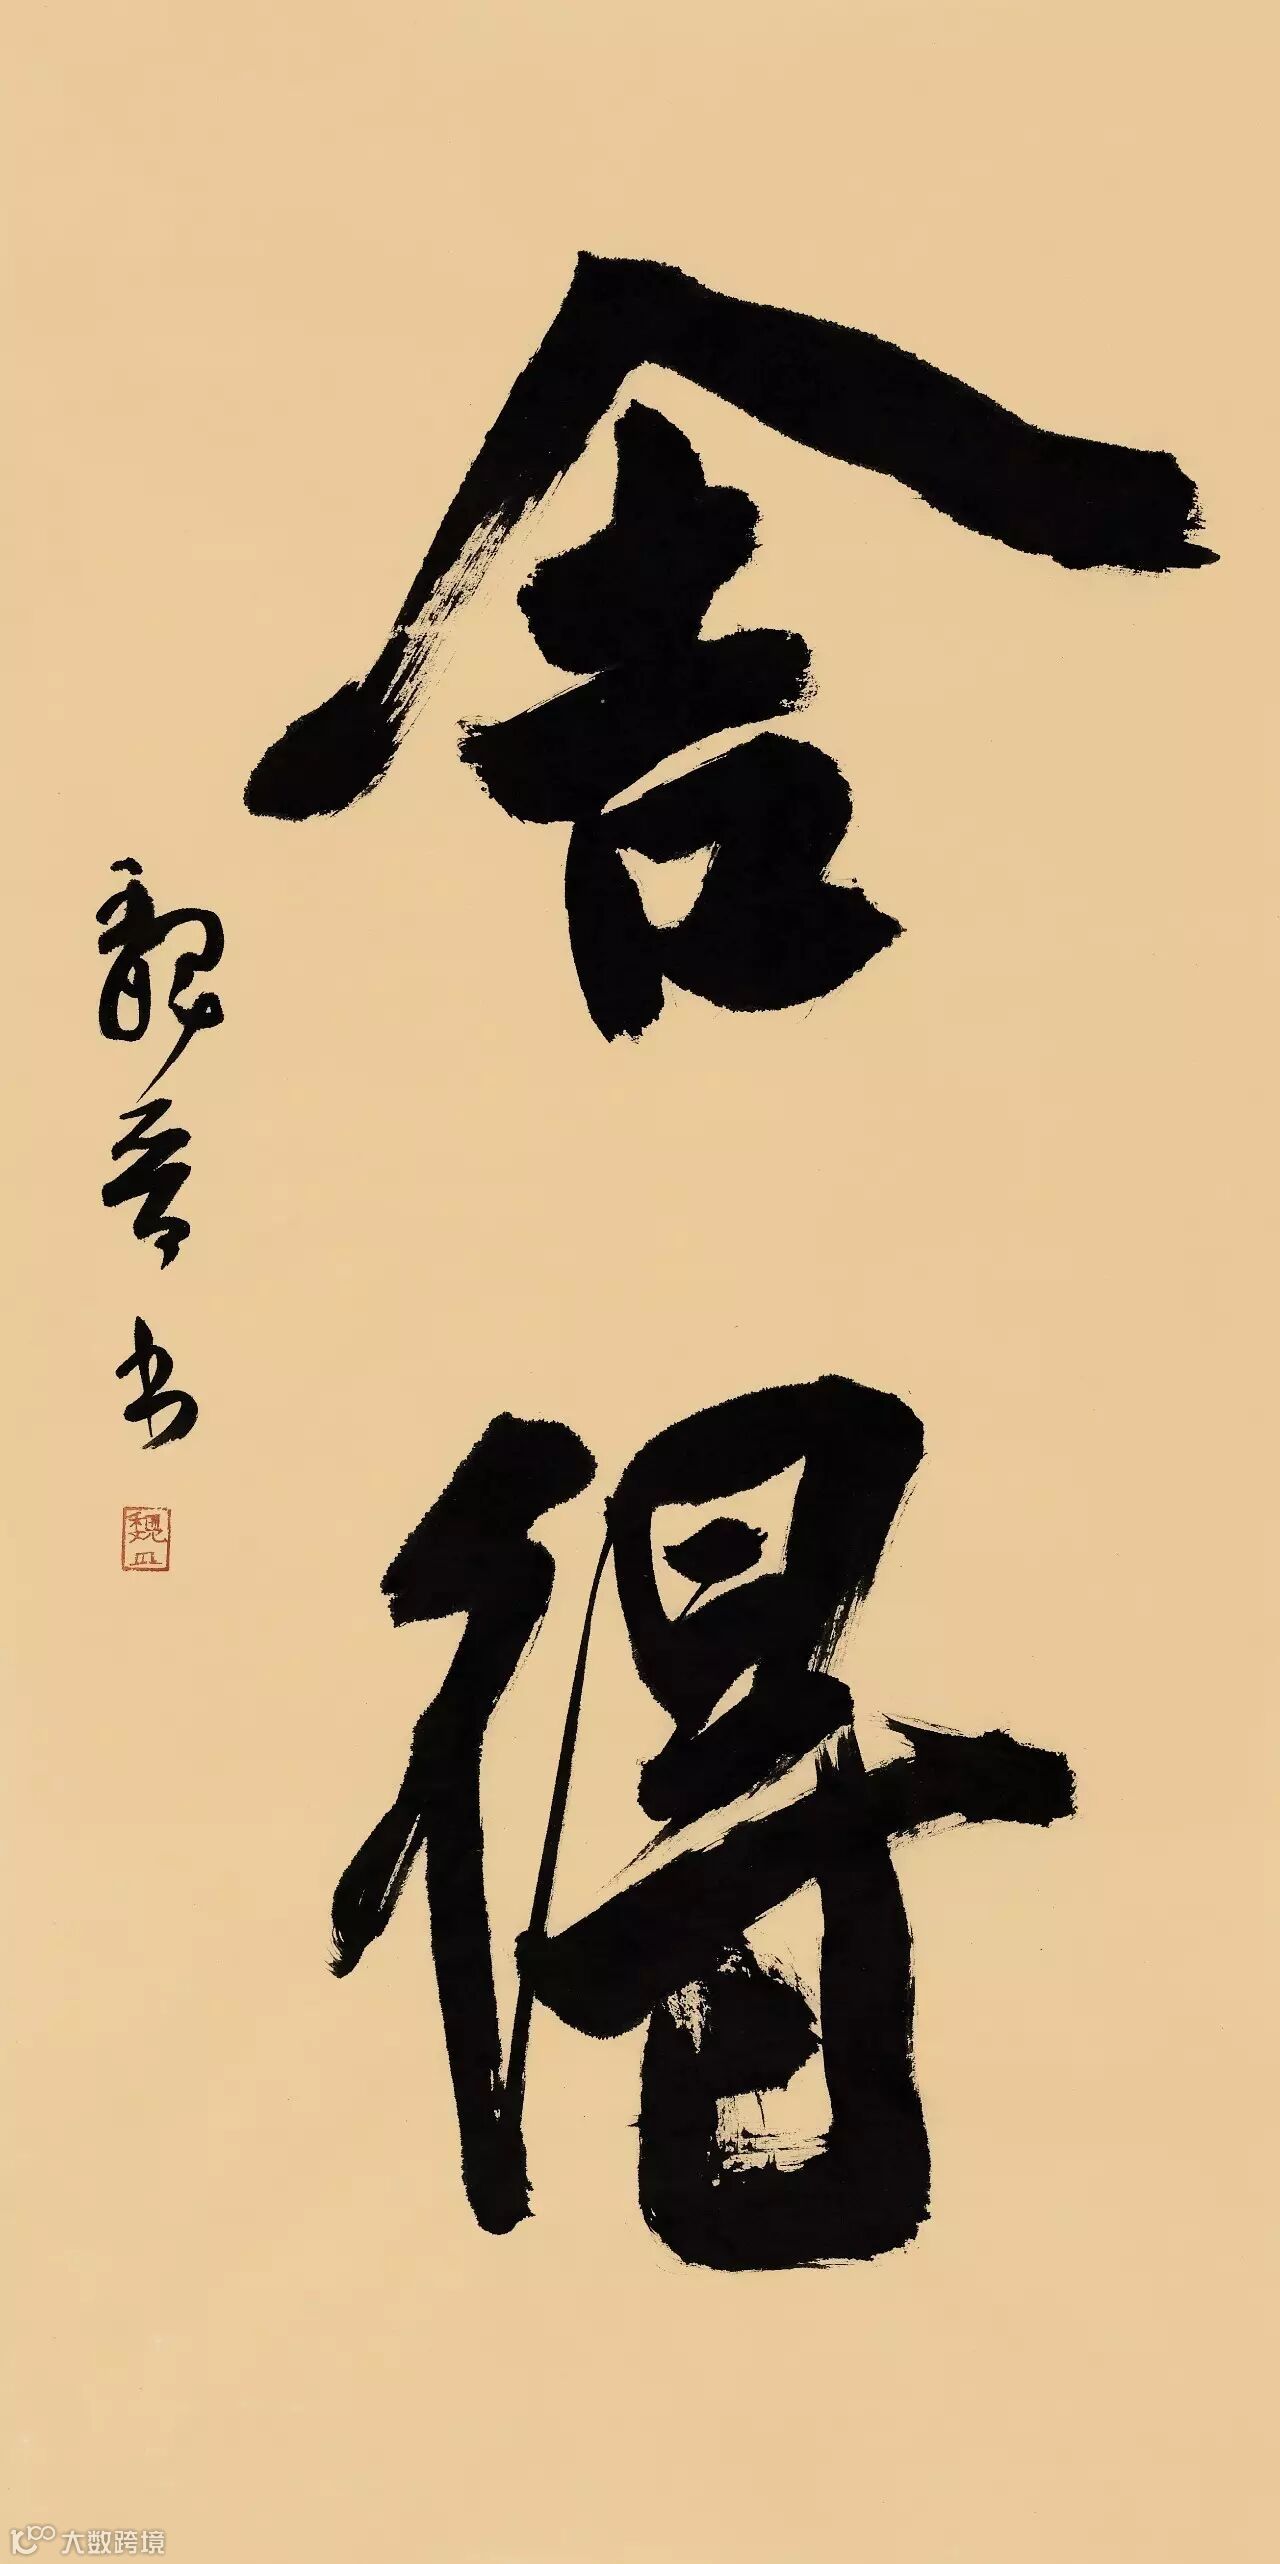 舍得
魏 书
魏
大数跨境